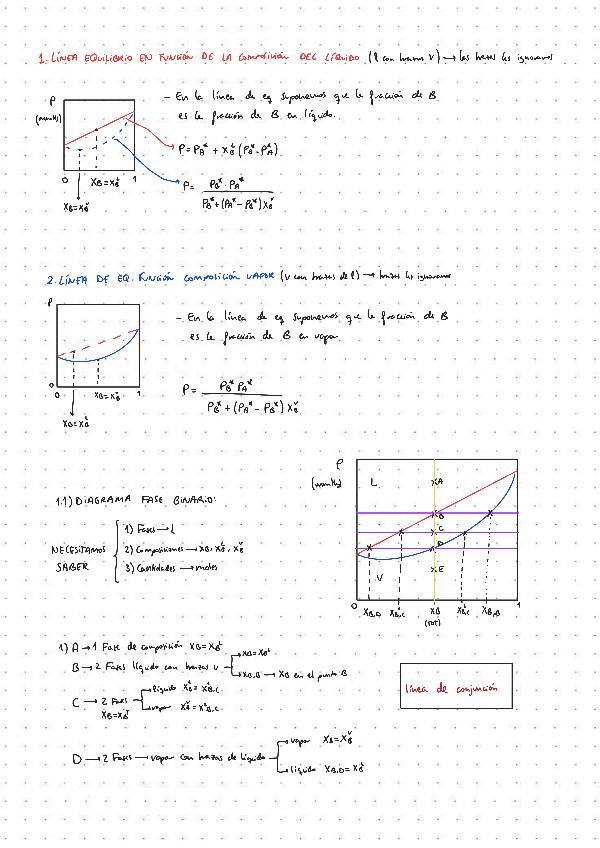 1. LÍNEA EQUILIBRIO EN FUNCIÓN DE LA COMPOSICIÓN DEL LÍQUIDO (l con trazas v) → las trazas las ignoramos
P
(mmHg)
- En la línea de eq suponemos que la fracción de B
es la fracción de B en líquido.
P = P_A* + X_B^L (P_B* - P_A*)
P = P_B* · P_A* / P_B* + (P_A* - P_B*) X_B^V
0 X_B = X_B^L 1
X_B = X_B^V
2. LÍNEA DE EQ. FUNCIÓN COMPOSICIÓN VAPOR (v con trazas de l) → trazas las ignoramos
P
- En la línea de eq suponemos que la fracción de B
es la fracción de B en vapor.
P = P_B* P_A* / P_B* + (P_A* - P_B*) X_B^V
0
0 X_B = X_B^V 1
X_B = X_B^L
1.1) DIAGRAMA FASE BINARIO:
NECESITAMOS SABER
1) Fases → L
2) Composiciones → X_B, X_B^L, X_B^V
3) Cantidades → moles
P
(mmHg)
L
A
B
C
D
E
V
0 X_B,D X_B,C X_B X_B,C X_B,B 1
(tot)
1) A → 1 Fase de composición X_B = X_B^L
B → 2 Fases líquido con trazas v
X_B = X_B^L
X_B,B → X_B en el punto B
C → 2 Fases
X_B = X_B^T
líquido X_B^L = X_B,C^L
vapor X_B^V = X_B,C^V
línea de conjunción
D → 2 Fases → vapor con trazas de líquido
vapor X_B = X_B^V
líquido X_B,D = X_B^L